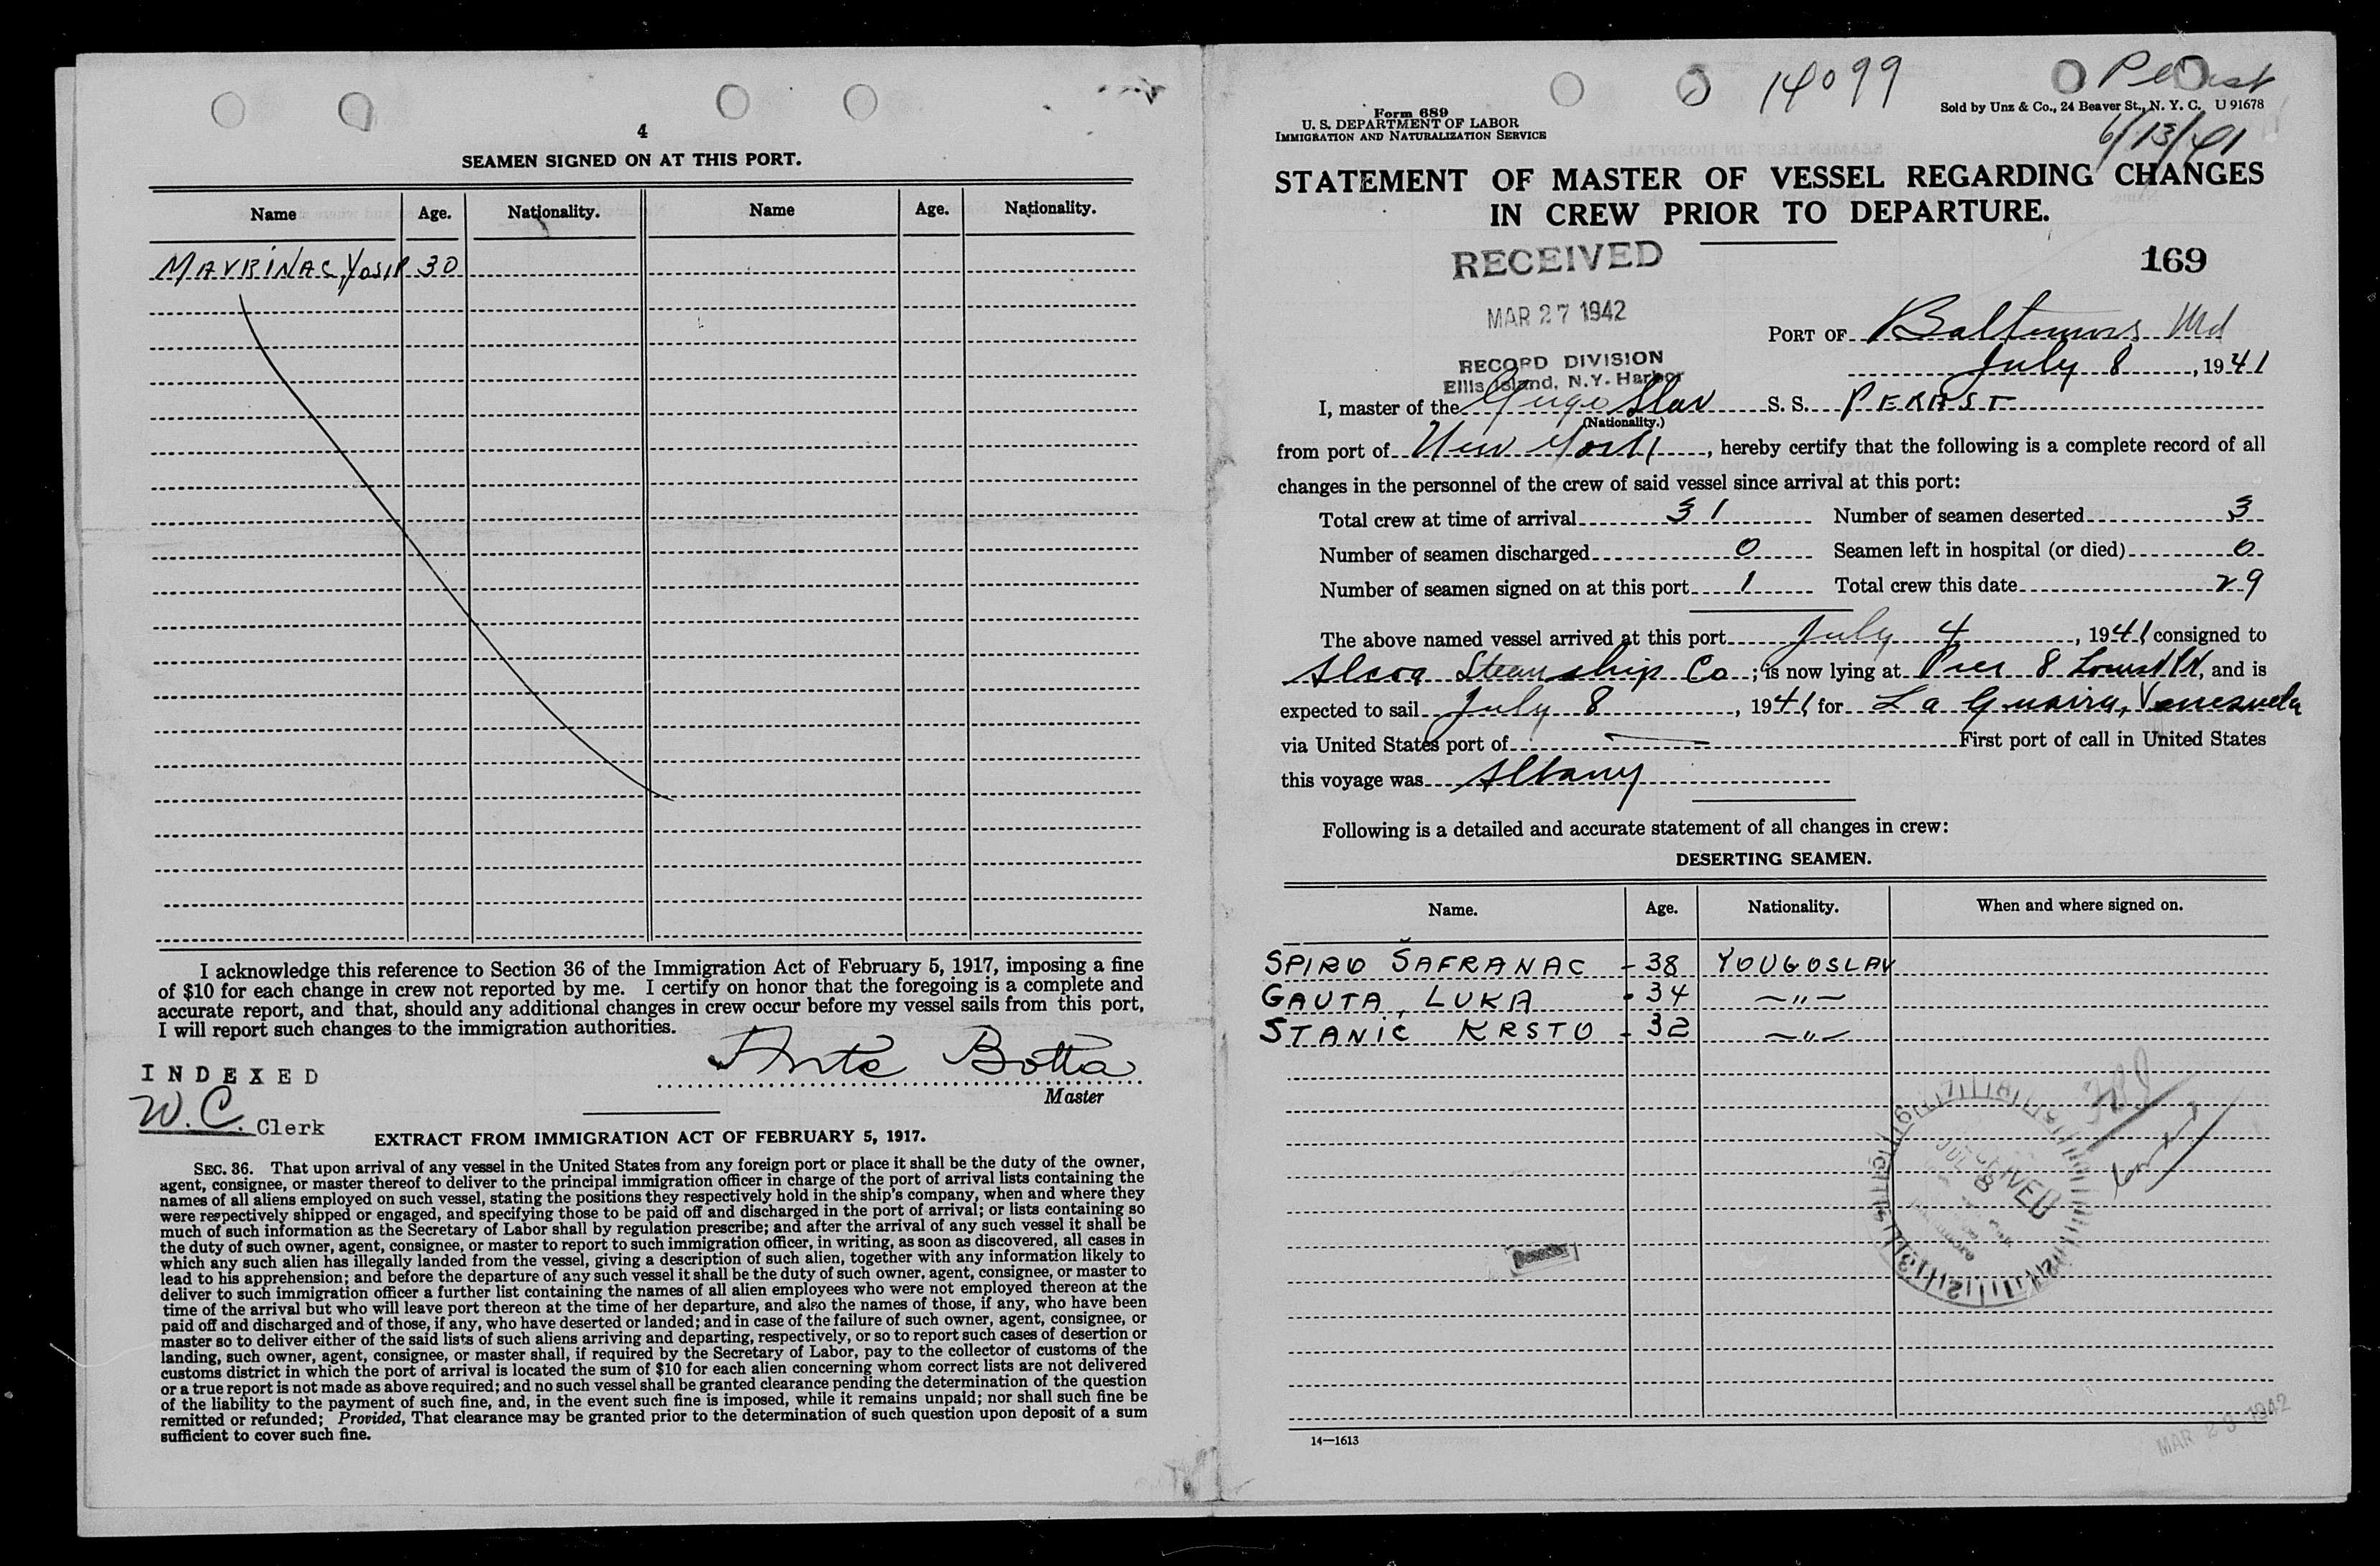 4
SEAMEN SIGNED ON AT THIS PORT.
Name Age. Nationality. Name Age. Nationality.
MAVRINAC, Yosip 30
I acknowledge this reference to Section 36 of the Immigration Act of February 5, 1917, imposing a fine
of $10 for each change in crew not reported by me. I certify on honor that the foregoing is a complete and
accurate report, and that, should any additional changes in crew occur before my vessel sails from this port,
I will report such changes to the immigration authorities.
Ante Botta
Master
INDEXED
W.C. Clerk
EXTRACT FROM IMMIGRATION ACT OF FEBRUARY 5, 1917.
SEC. 36. That upon arrival of any vessel in the United States from any foreign port or place it shall be the duty of the owner,
agent, consignee, or master thereof to deliver to the principal immigration officer in charge of the port of arrival lists containing the
names of all aliens employed on such vessel, stating the positions they respectively hold in the ship's company, when and where they
were respectively shipped or engaged, and specifying those to be paid off and discharged in the port of arrival; or lists containing so
much of such information as the Secretary of Labor shall by regulation prescribe; and after the arrival of any such vessel it shall be
the duty of such owner, agent, consignee, or master to report to such immigration officer, in writing, as soon as discovered, all cases in
which any such alien has illegally landed from the vessel, giving a description of such alien, together with any information likely to
lead to his apprehension; and before the departure of any such vessel it shall be the duty of such owner, agent, consignee, or master to
deliver to such immigration officer a further list containing the names of all alien employees who were not employed thereon at the
time of the arrival but who will leave port thereon at the time of her departure, and also the names of those, if any, who have been
paid off and discharged and of those, if any, who have deserted or landed; and in case of the failure of such owner, agent, consignee, or
master so to deliver either of the said lists of such aliens arriving and departing, respectively, or so to report such cases of desertion or
landing, such owner, agent, consignee, or master shall, if required by the Secretary of Labor, pay to the collector of customs of the
customs district in which the port of arrival is located the sum of $10 for each alien concerning whom correct lists are not delivered
or a true report is not made as above required; and no such vessel shall be granted clearance pending the determination of the question
of the liability to the payment of such fine, and, in the event such fine is imposed, while it remains unpaid; nor shall such fine be
remitted or refunded; Provided, That clearance may be granted prior to the determination of such question upon deposit of a sum
sufficient to cover such fine.
14099
Form 689
U. S. DEPARTMENT OF LABOR
IMMIGRATION AND NATURALIZATION SERVICE
Sold by Unz & Co., 24 Beaver St., N. Y. C. U 91678
6/13/41
STATEMENT OF MASTER OF VESSEL REGARDING CHANGES
IN CREW PRIOR TO DEPARTURE.
RECEIVED
169
MAR 27 1942
PORT OF Baltimore Md
RECORD DIVISION
Ellis Island, N.Y. Harbor
July 8, 1941
I, master of the Yugo Slav S. S. PERAST
(Nationality.)
from port of New York, hereby certify that the following is a complete record of all
changes in the personnel of the crew of said vessel since arrival at this port:
Total crew at time of arrival 31 Number of seamen deserted 3
Number of seamen discharged 0 Seamen left in hospital (or died) 0
Number of seamen signed on at this port 1 Total crew this date 29
The above named vessel arrived at this port July 4, 1941 consigned to
Alcoa Steamship Co; is now lying at Pier 8 , and is
expected to sail July 8, 1941 for La Guaira, Venezuela
via United States port of — First port of call in United States
this voyage was Albany
Following is a detailed and accurate statement of all changes in crew:
DESERTING SEAMEN.
Name. Age. Nationality. When and where signed on.
SPIRO ŠAFRANAC - 38 YOUGOSLAV
GAUTA, LUKA - 34 —"—
STANIĆ KRSTO - 32 —"—
RECEIVED
JUL 8
14—1613
MAR 29 1942